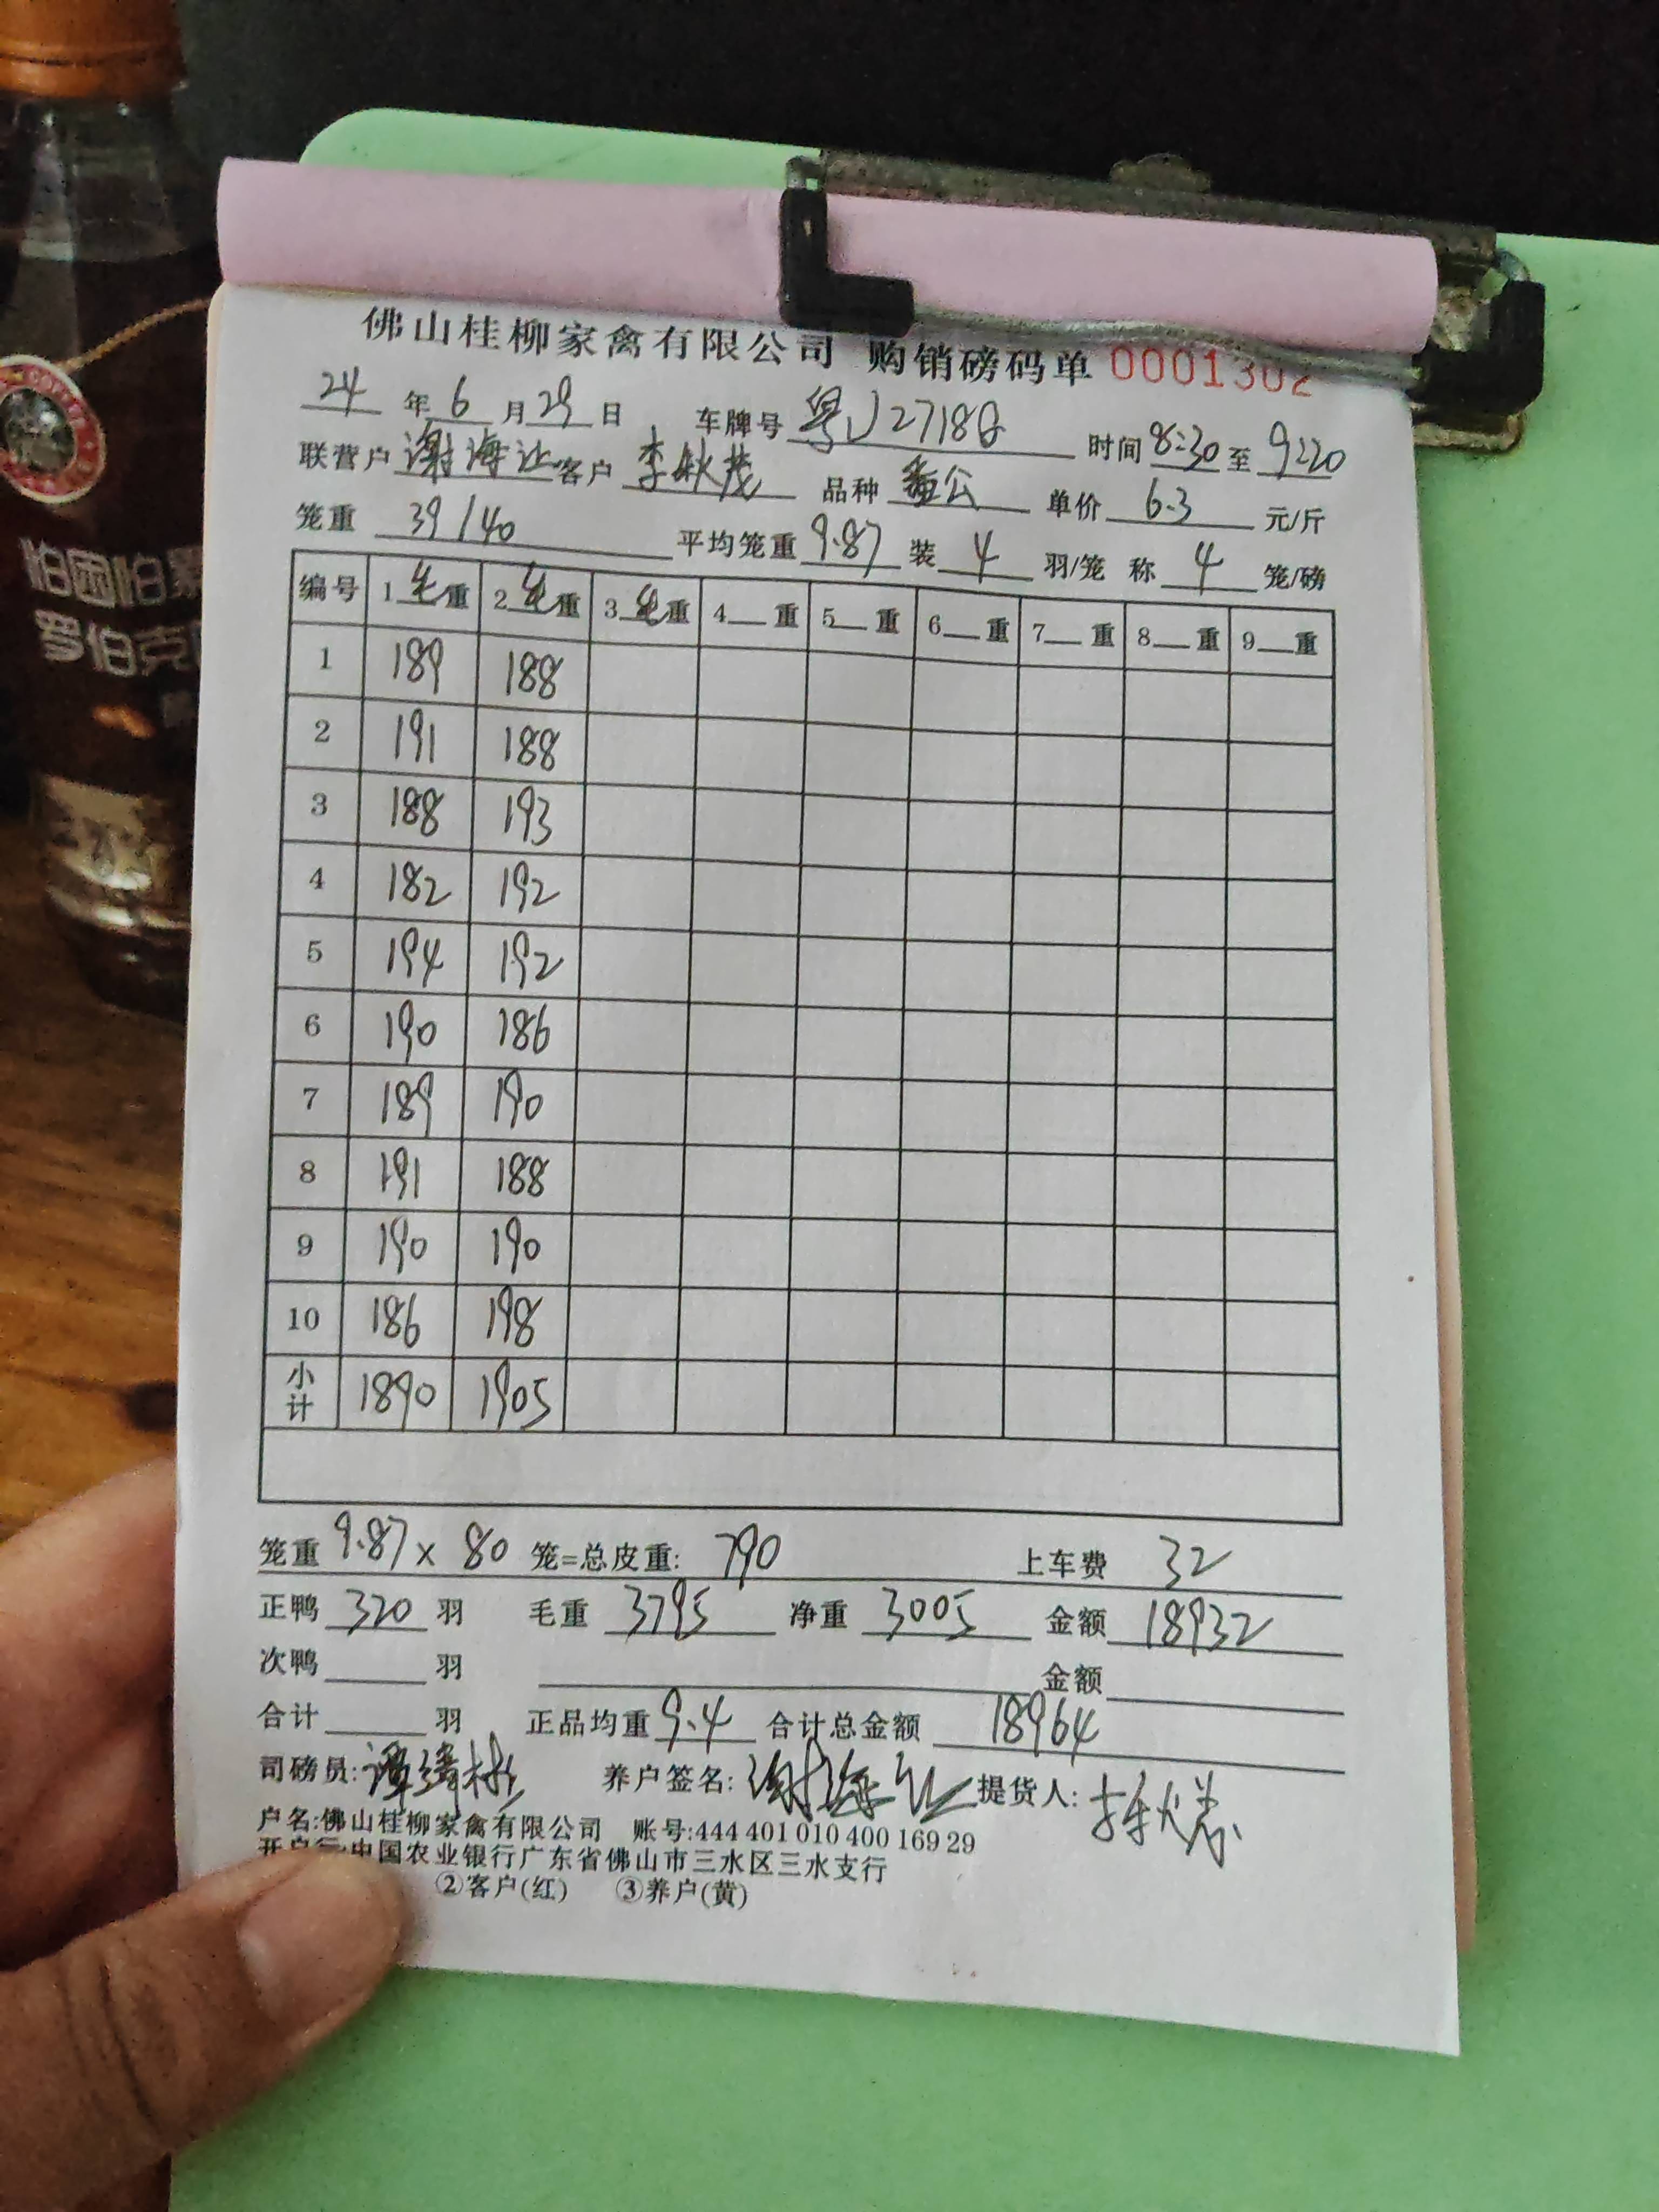 佛山桂柳家禽有限公司 购销磅码单 0001302
24 年 6 月 29 日 车牌号 粤J27188 时间 8:30 至 9:20
联营户 谢海让 客户 李秋茂 品种 番公 单价 6.3 元/斤
笼重 39/40 平均笼重 9.87 装 4 羽/笼 称 4 笼/磅
编号 1毛重 2毛重 3毛重 4__重 5__重 6__重 7__重 8__重 9__重
1 189 188
2 191 188
3 188 193
4 182 192
5 194 192
6 190 186
7 189 190
8 191 188
9 190 190
10 186 198
小计 1890 1905
笼重 9.87 x 80 笼=总皮重: 790 上车费 32
正鸭 320 羽 毛重 3795 净重 3005 金额 18932
次鸭 羽 金额
合计 羽 正品均重 9.4 合计总金额 18964
司磅员: 养户签名: 谢海让 提货人: 李秋茂
户名:佛山桂柳家禽有限公司 账号:444 401 010 400 169 29
开户行:中国农业银行广东省佛山市三水区三水支行
②客户(红) ③养户(黄)